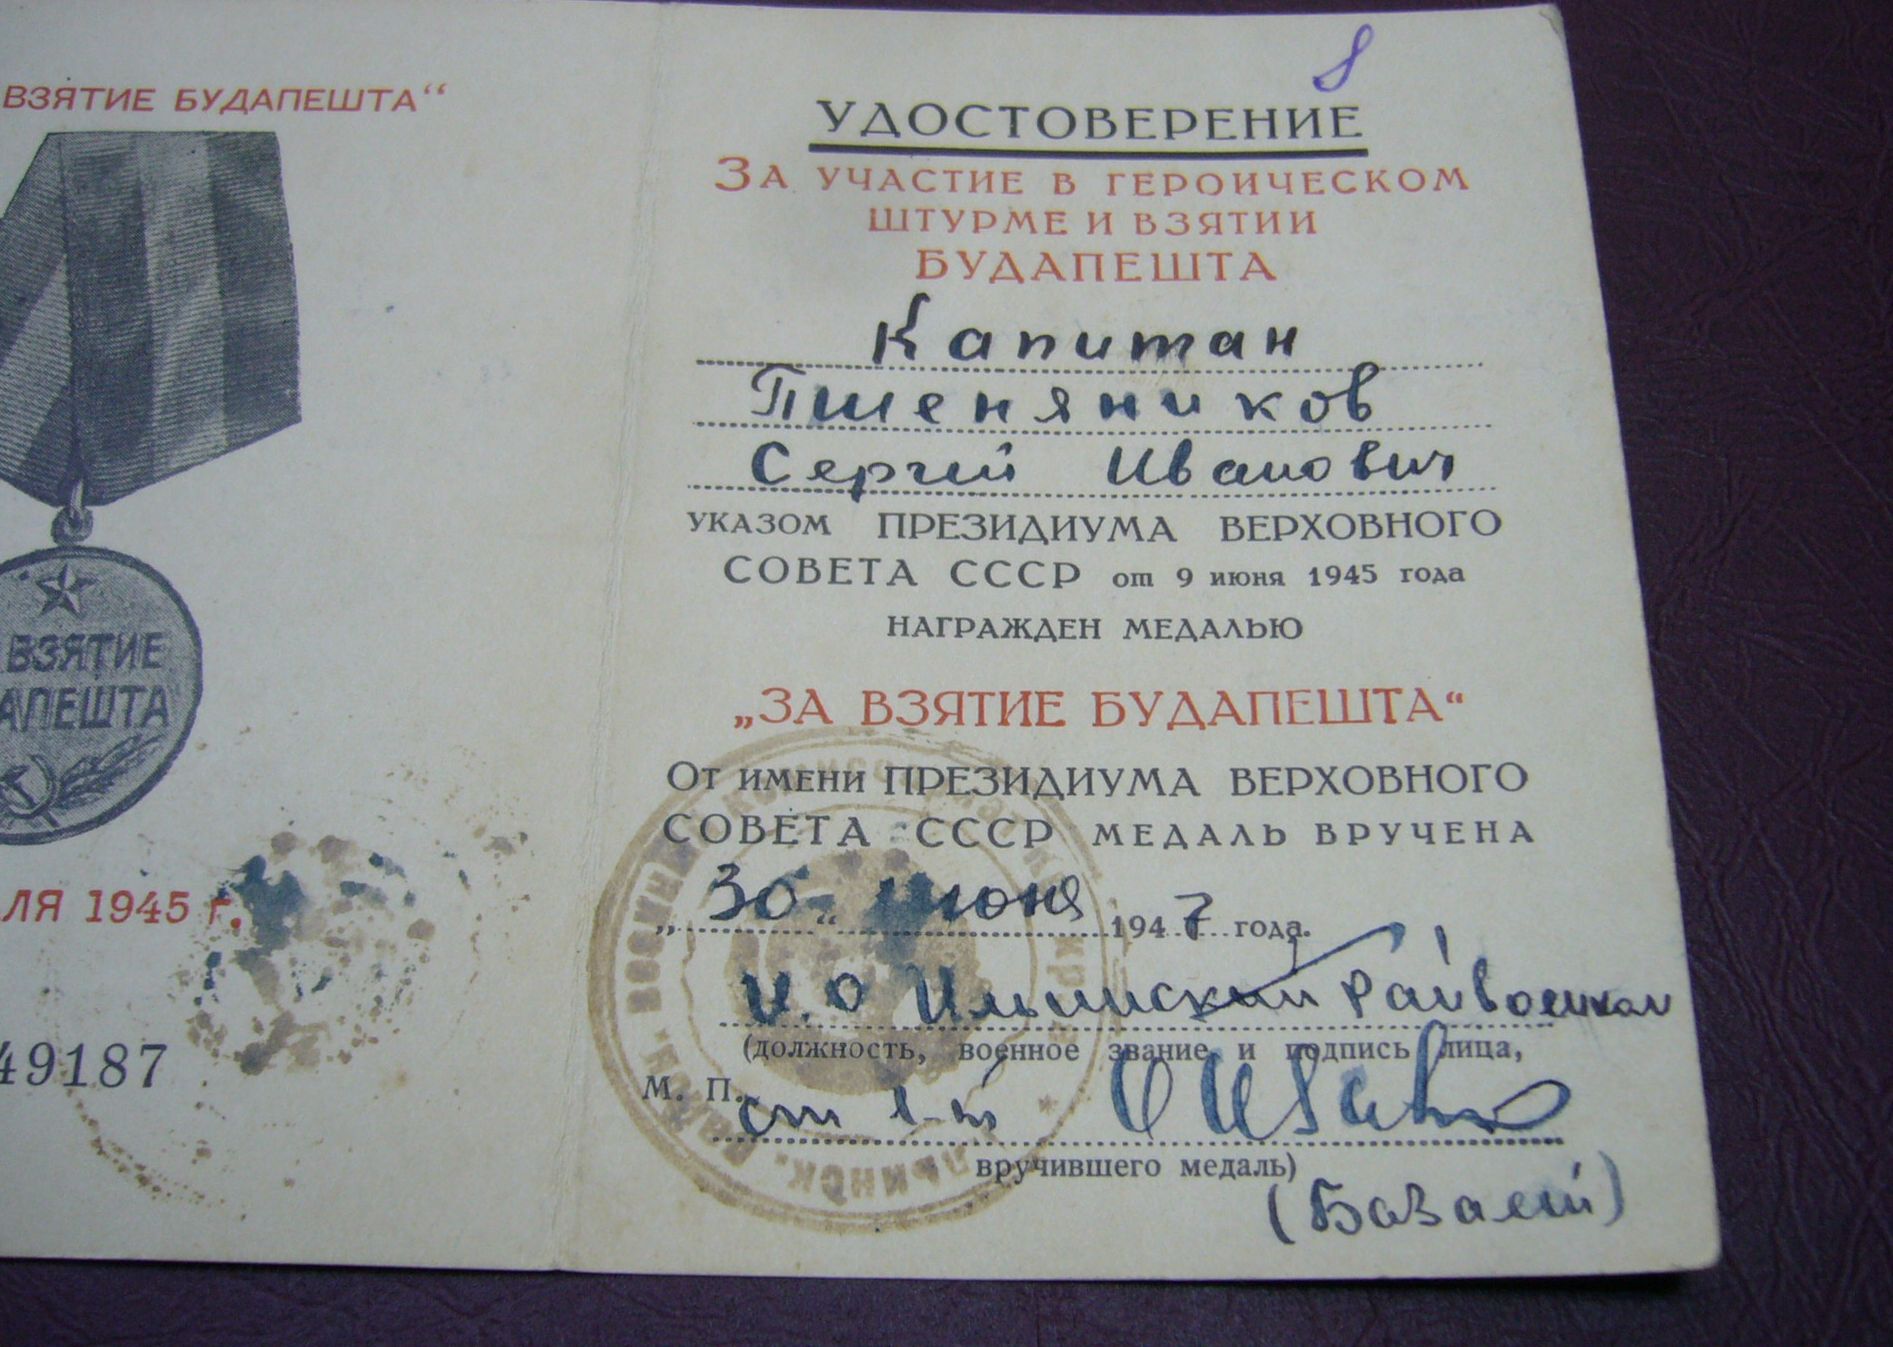 ВЗЯТИЕ БУДАПЕШТА“
ВЗЯТИЕ
АПЕШТА
ЛЯ 1945 г.
49187
8
УДОСТОВЕРЕНИЕ
ЗА УЧАСТИЕ В ГЕРОИЧЕСКОМ
ШТУРМЕ И ВЗЯТИИ
БУДАПЕШТА
Капитан
Пшеняников
Сергей Иванович
УКАЗОМ ПРЕЗИДИУМА ВЕРХОВНОГО
СОВЕТА СССР от 9 июня 1945 года
НАГРАЖДЕН МЕДАЛЬЮ
„ЗА ВЗЯТИЕ БУДАПЕШТА“
ОТ ИМЕНИ ПРЕЗИДИУМА ВЕРХОВНОГО
СОВЕТА СССР МЕДАЛЬ ВРУЧЕНА
„30“ июня 1947 года.
И.О Райвоенком
(должность, военное звание и подпись лица,
М. П. ст л-т
вручившего медаль)